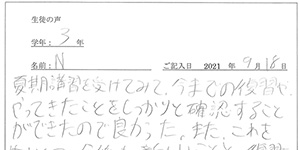 生徒の声
学年： 3 年
名前： N ご記入日 2021 年 9 月 18 日
夏期講習を受けてみて、今までの復習や、
やってきたことをしっかりと確認すること
ができたので良かった。また、これを